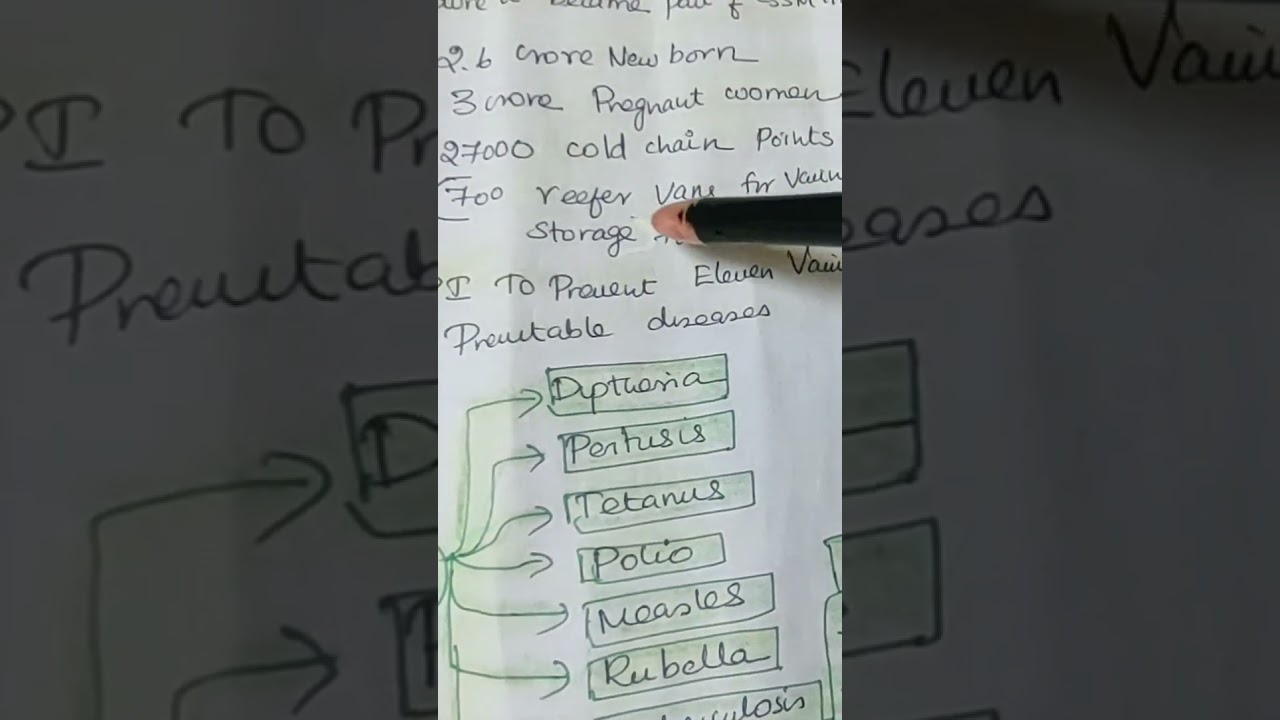 2.6 crore New born
3 crore Pregnaut women
27000 cold chain Points
700 reefer Vans for
Storage
I To Prevent Eleven
Preuntable diseases
Diptheria
Pertusis
Tetanus
Polio
Measles
Rubella